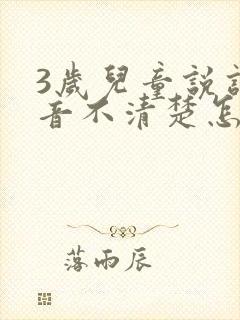 3歲兒童說話
音不清楚怎
落雨辰